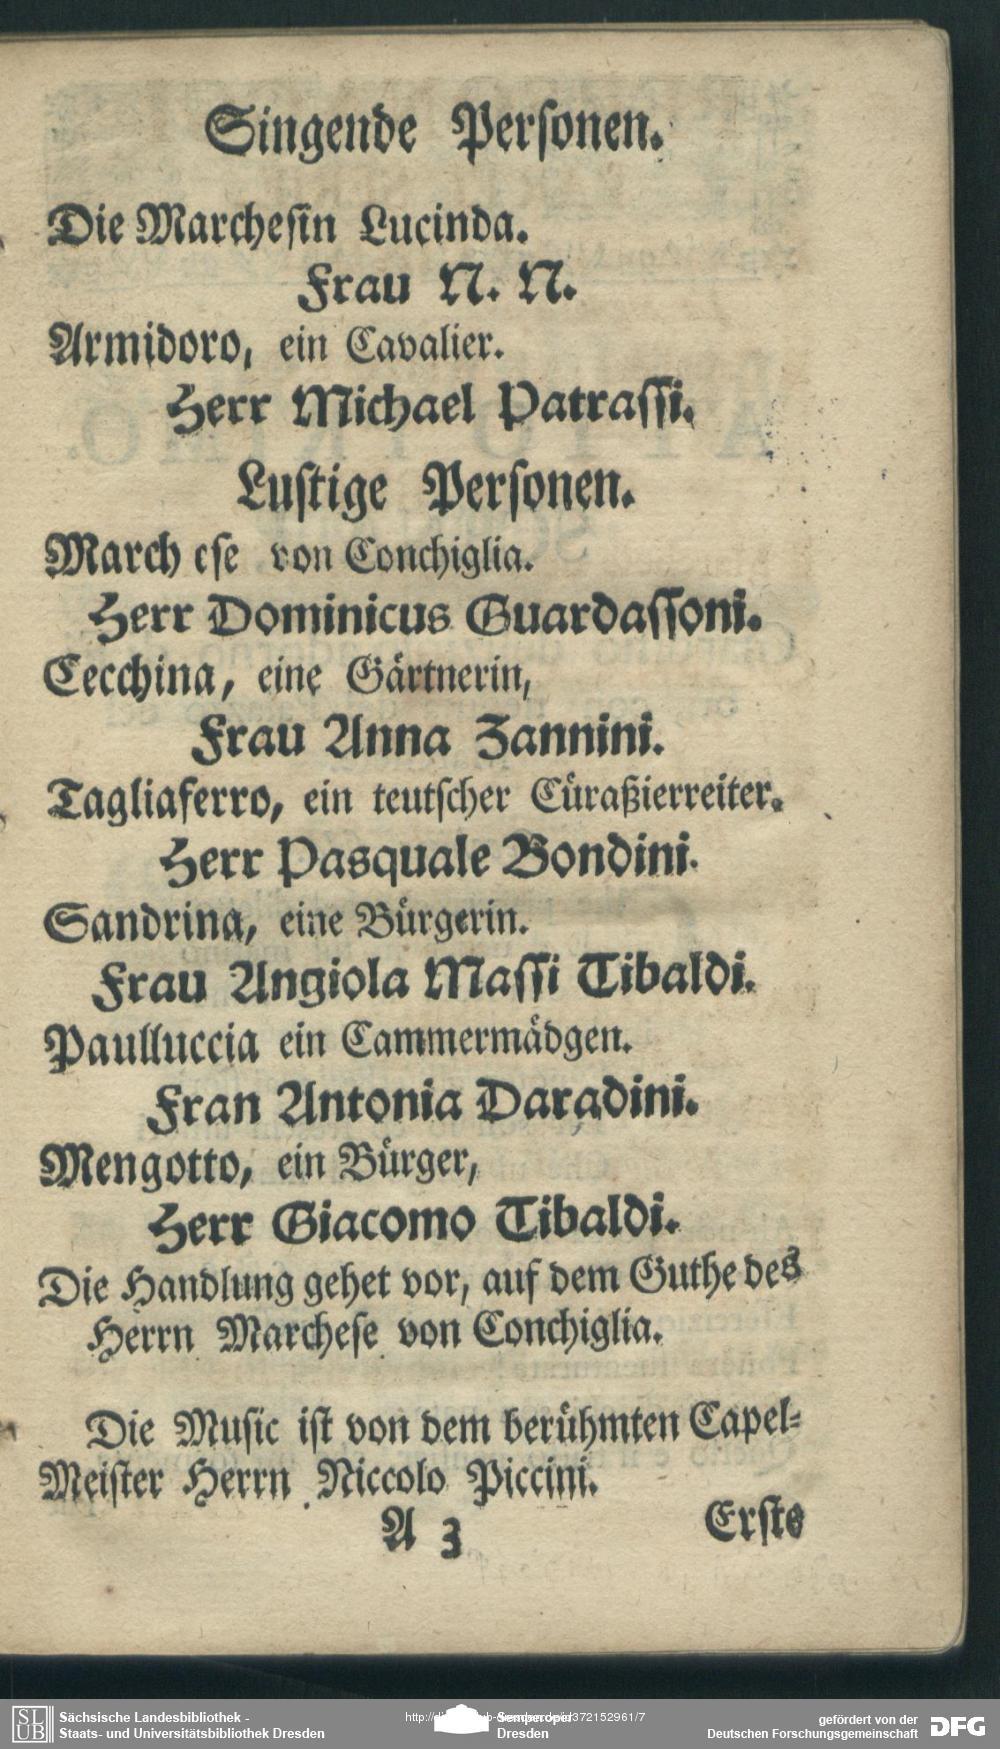 Singende Personen.
Die Marchesin Lucinda.
Frau N. N.
Armidoro, ein Cavalier.
Herr Michael Patrassi.
Lustige Personen.
March ese von Conchiglia.
Herr Dominicus Guardassoni.
Cecchina, eine Gärtnerin,
Frau Anna Zannini.
Tagliaferro, ein teutscher Cüraßierreiter.
Herr Pasquale Bondini.
Sandrina, eine Bürgerin.
Frau Angiola Massi Tibaldi.
Paulluccia ein Cammermädgen.
Fran Antonia Daradini.
Mengotto, ein Bürger,
Herr Giacomo Tibaldi.
Die Handlung gehet vor, auf dem Guthe des
Herrn Marchese von Conchiglia.
Die Music ist von dem berühmten Capel-
Meister Herrn Niccolo Piccini.
A 3
Erste
SLUB
Sächsische Landesbibliothek -
Staats- und Universitätsbibliothek Dresden
Semperoper
Dresden
gefördert von der
Deutschen Forschungsgemeinschaft
DFG